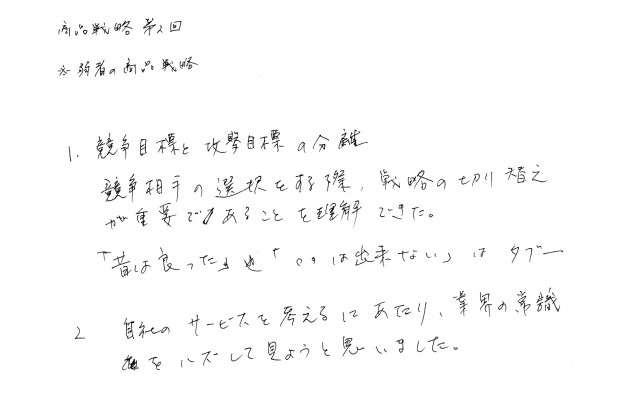 商品戦略 第2回
※弱者の商品戦略
1. 競争目標と攻撃目標の分離
競争相手の選択をする際、戦略の切り替え
が重要であることを理解できた。
「昔は良った」や「〇〇は出来ない」はタブー
2 自社のサービスを考えるにあたり、業界の常識
をハズして見ようと思いました。